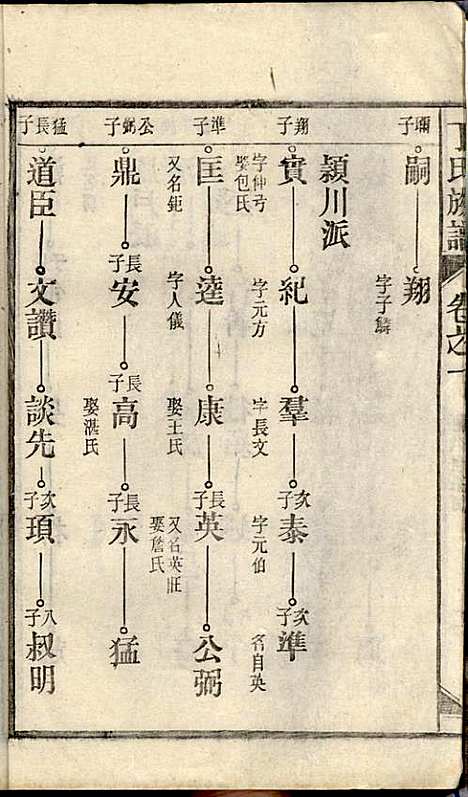 丁氏族譜
卷之一
瓓子
嗣
翔
字子鱗
潁川派
翔子
寔
字仲弓
娶包氏
紀
字元方
羣
字長文
次子
泰
字元伯
次子
準
名自英
準子
匡
又名鉅
達
字人儀
康
娶王氏
長子
英
又名英旺
娶詹氏
公弼
公弼子
鼎
長子
安
長子
高
娶湛氏
長子
永
猛
猛長子
道臣
文讚
談先
次子
頊
八子
叔明